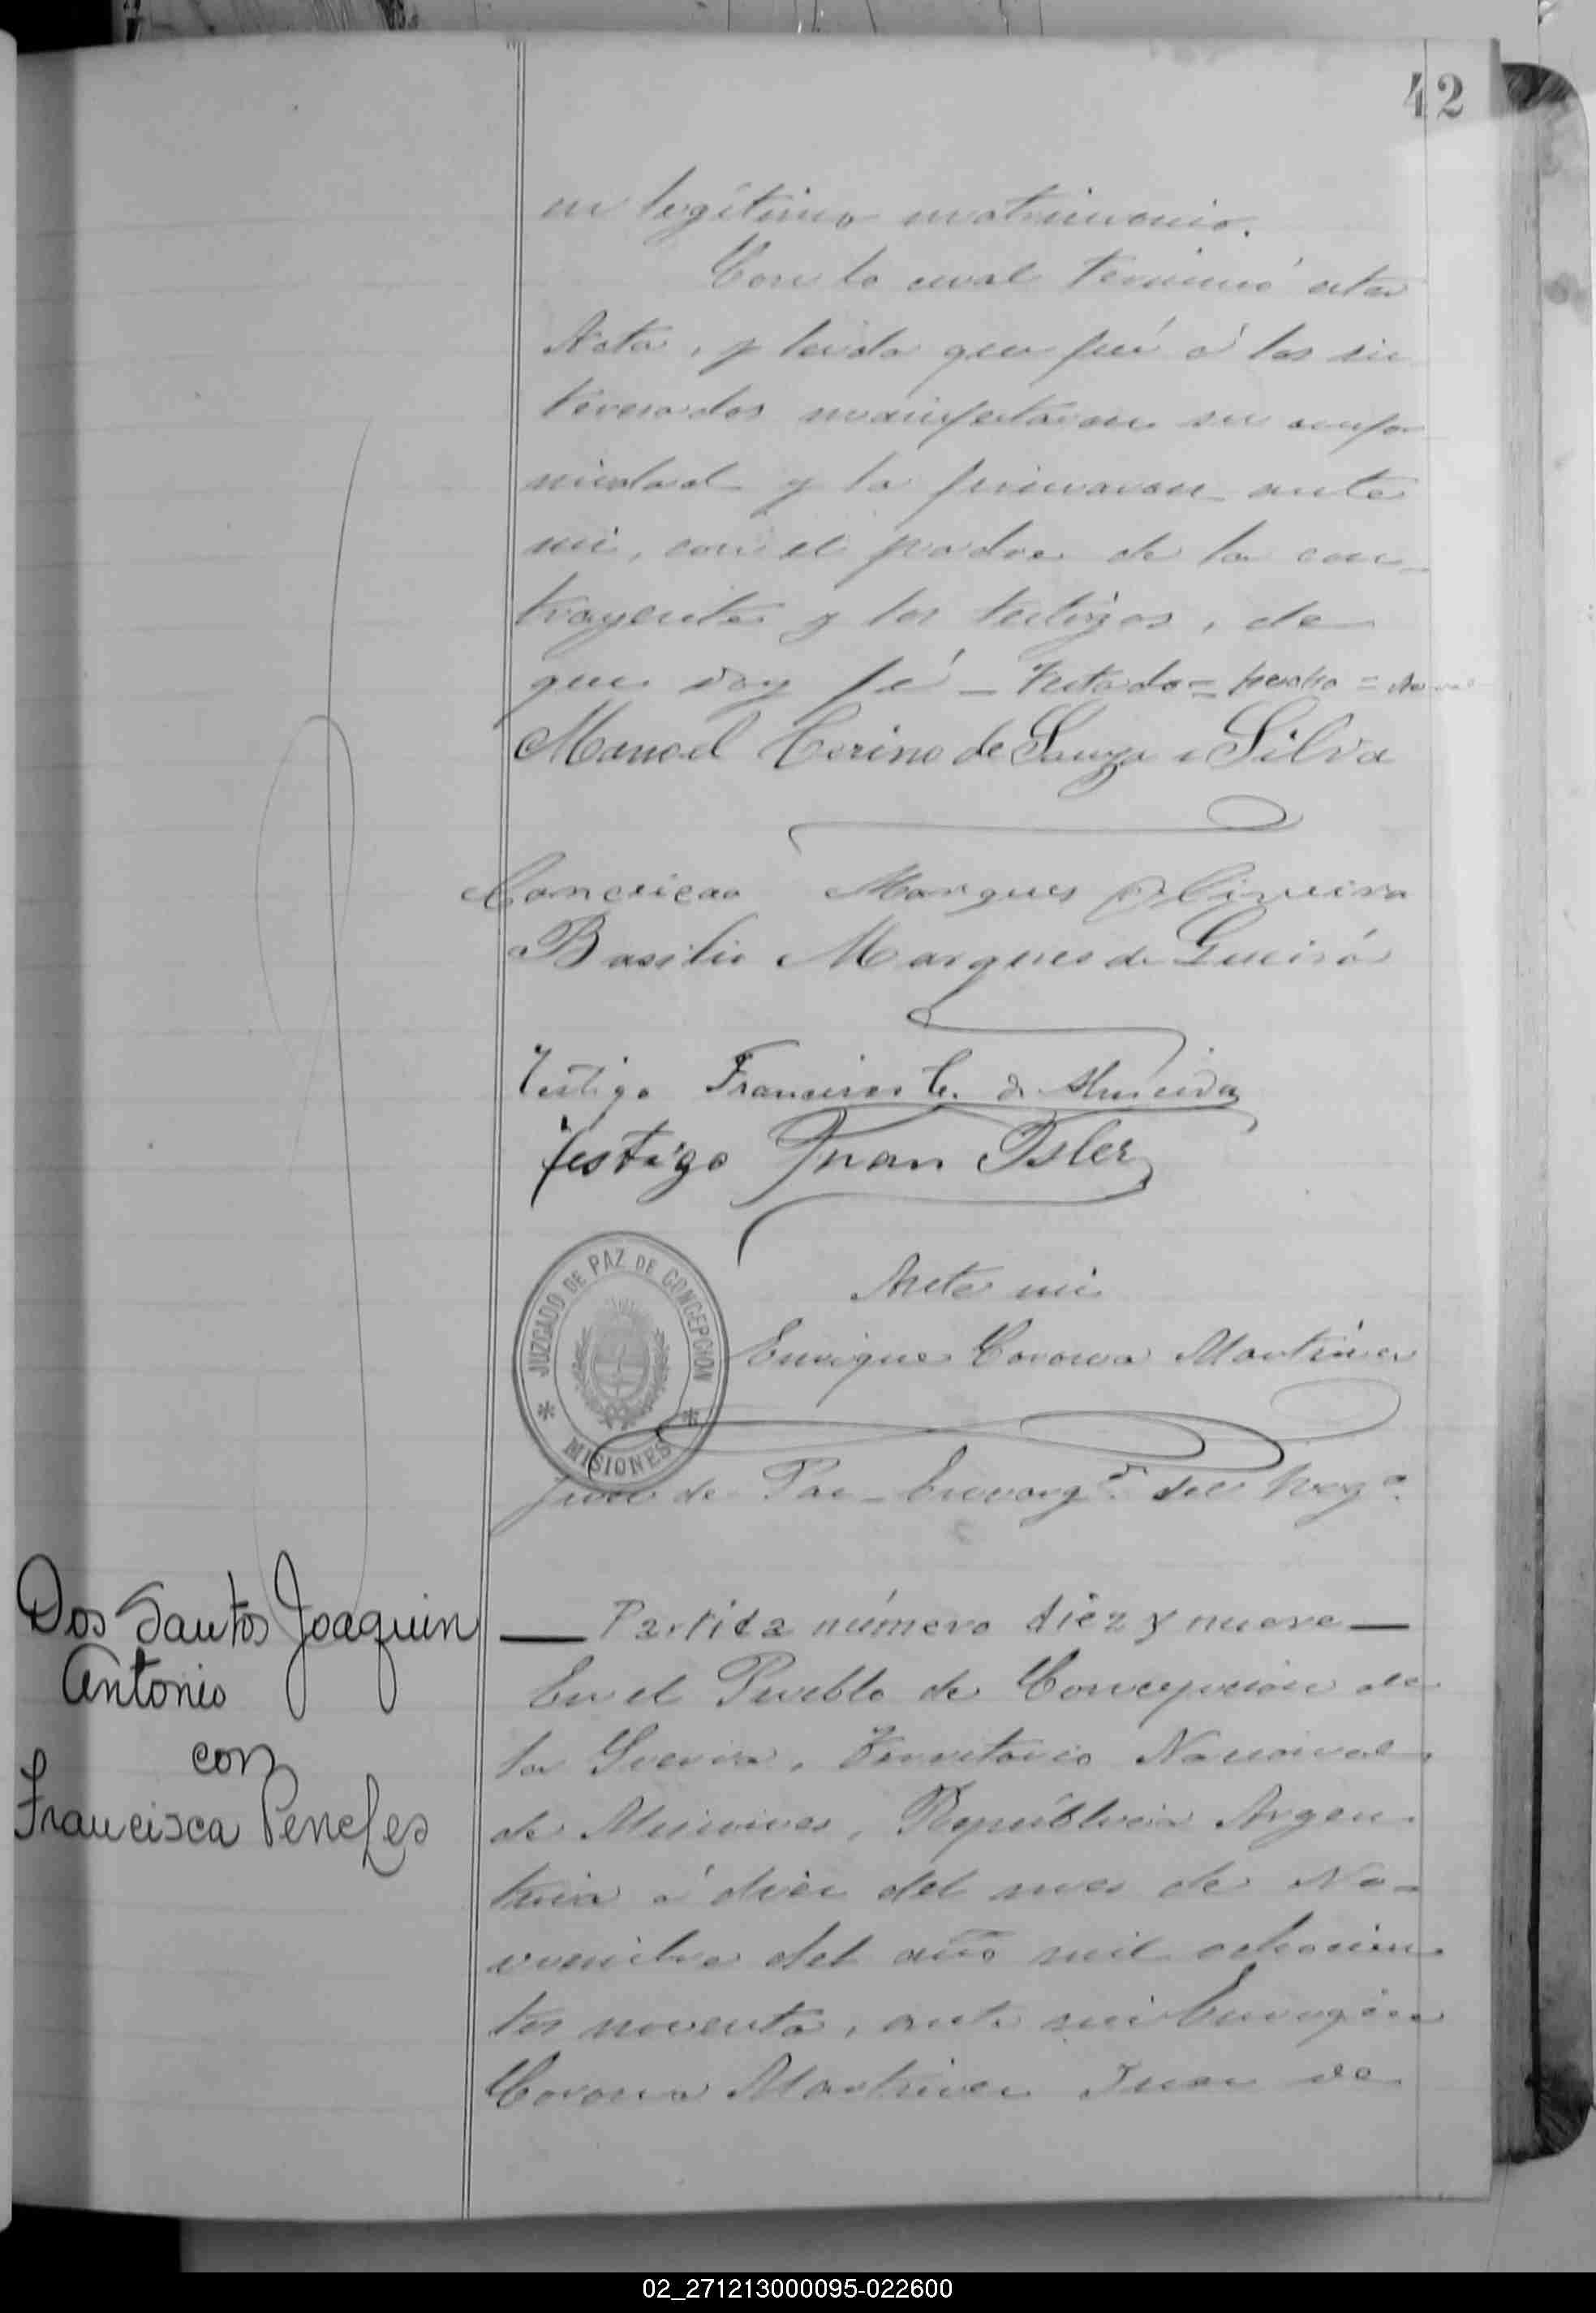 42
en legítimo matrimonio.
Con lo cual terminó esta
Acta, y leida que fué á los in
teresados manifestaron su confor
midad y la firmaron ante
mi, con el padre de la con-
trayente y los testigos, de
que doy fé - Testado =
Manoel Cerino de Souza e Silva
Conceicao Marques Oliveira
Basilio Marques de Gueiró
Testigo Francisco C. de Almeida
Testigo Juan Isler
JUZGADO DE PAZ DE CONCEPCION
* MISIONES *
Ante mi
Enrique Corona Martinez
Juez de Paz - Encargdo del Rego
Dos Santos Joaquin
Antonio
con
Francisca Peneles
— Partida número diez y nueve —
En el Pueblo de Concepcion de
la Sierra, Territorio Nacional
de Misiones, República Argen-
tina á diez del mes de No-
viembre del año mil ochocien-
tos noventa, ante mi Enrique
Corona Martinez Juez de
02_271213000095-022600